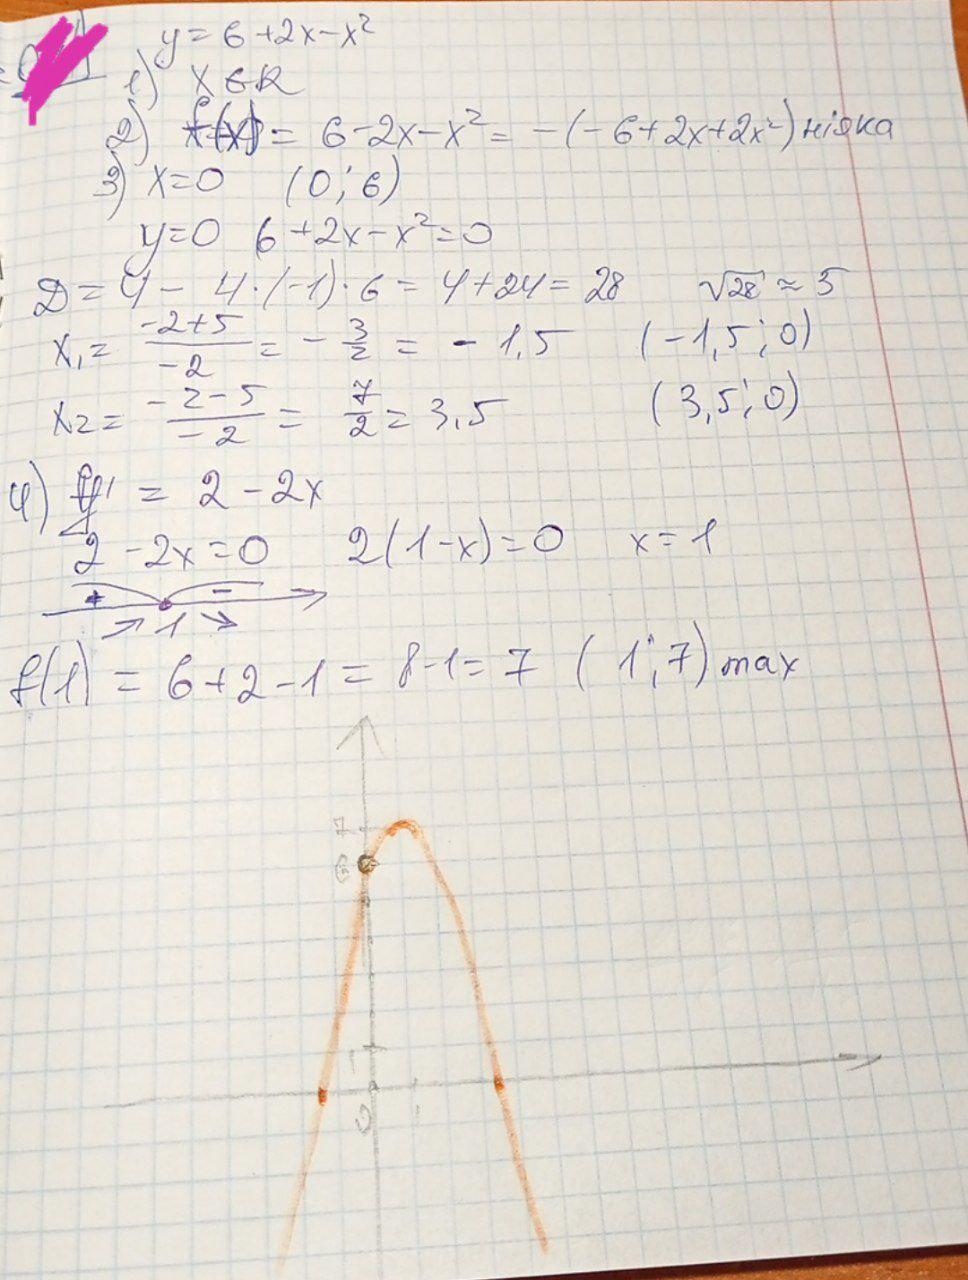 y = 6 + 2x - x²
1) x ∈ R
2) f(-x) = 6 - 2x - x² = -(-6 + 2x + 2x²) ніяка
3) x = 0 (0; 6)
y = 0 6 + 2x - x² = 0
D = 4 - 4·(-1)·6 = 4 + 24 = 28 √28 ≈ 5
x₁ = (-2+5)/(-2) = -3/2 = -1,5 (-1,5; 0)
x₂ = (-2-5)/(-2) = 7/2 = 3,5 (3,5; 0)
4) y' = 2 - 2x
2 - 2x = 0 2(1-x) = 0 x = 1
+ -
↗ 1 ↘
f(1) = 6 + 2 - 1 = 8 - 1 = 7 (1; 7) max
7
6
1
0 1